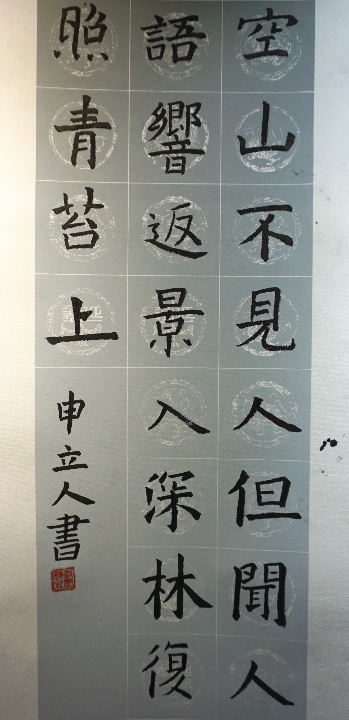 空山不見人但聞人
語響返景入深林復
照青苔上
申立人書